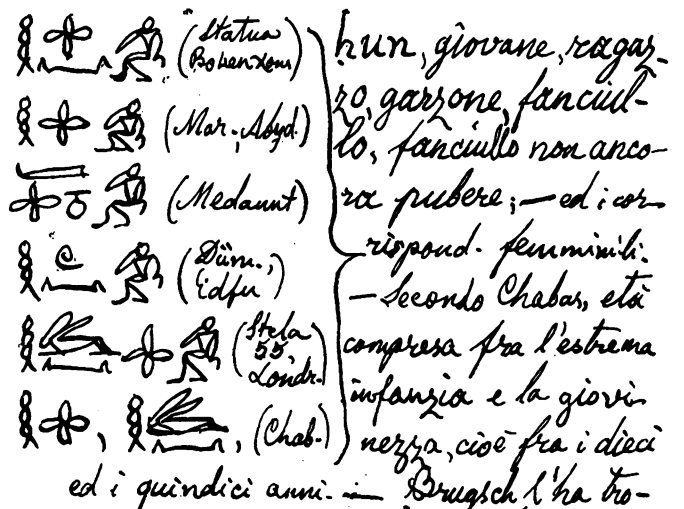 (Statua
Bokenxons)
(Mar., Abyd.)
(Medaunt)
(Düm.,
Edfu)
(Stela
55,
Londr.)
(Chab.)
hun, giovane, ragaz-
zo, garzone, fanciul-
lo, fanciullo non anco-
ra pubere; — ed i cor-
rispond. femminili.
— Secondo Chabas, età
compresa fra l'estrema
infanzia e la giovi-
nezza, cioè fra i dieci
ed i quindici anni. — Brugsch l'ha tro-